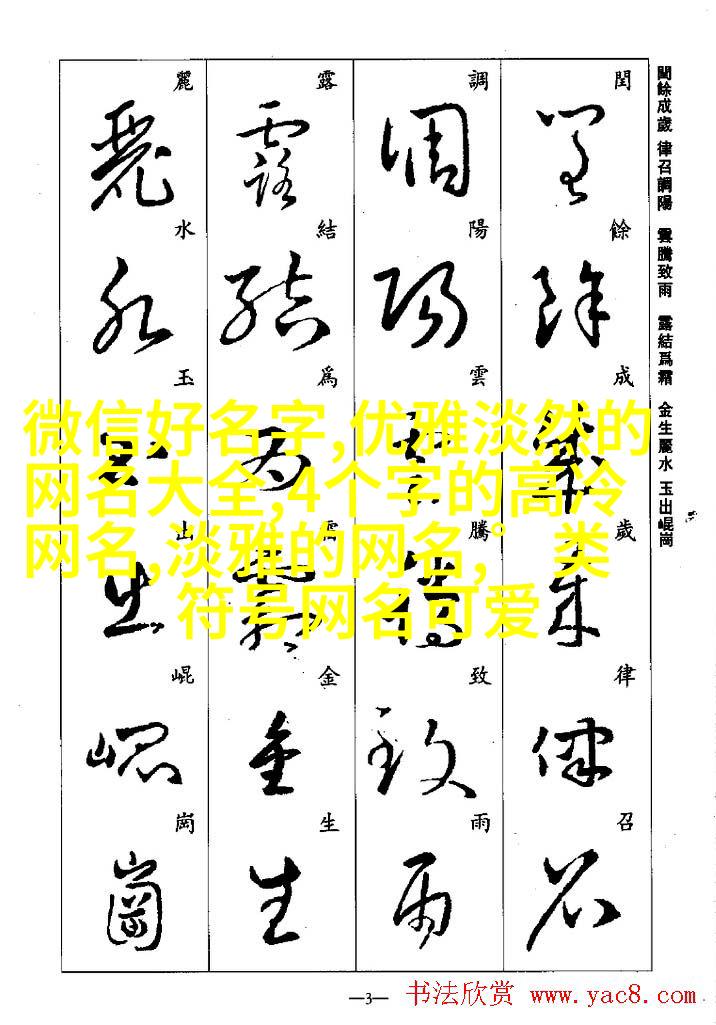 閏餘成歲 律召調陽 雲騰致雨 露結爲霜 金生麗水 玉出崐崗
閏 餘 成 歲 律 召
閏 餘 成 歲 律 召
調 陽 雲 騰 致 雨
調 陽 雲 騰 致 雨
露 結 爲 霜 金 生
露 結 爲 霜 金 生
麗 水 玉 出 崐 崗
麗 水 玉 出 崐 崗
微信好名字,优雅淡然的
网名大全,4个字的高冷
网名,淡雅的网名,° 类
符号网名可爱
—3—
书法欣赏 www.yac8.com